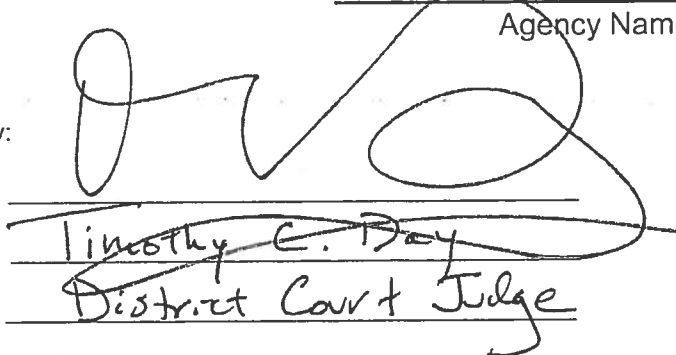 Agency Nam
y:
Timothy C. Day
District Court Judge